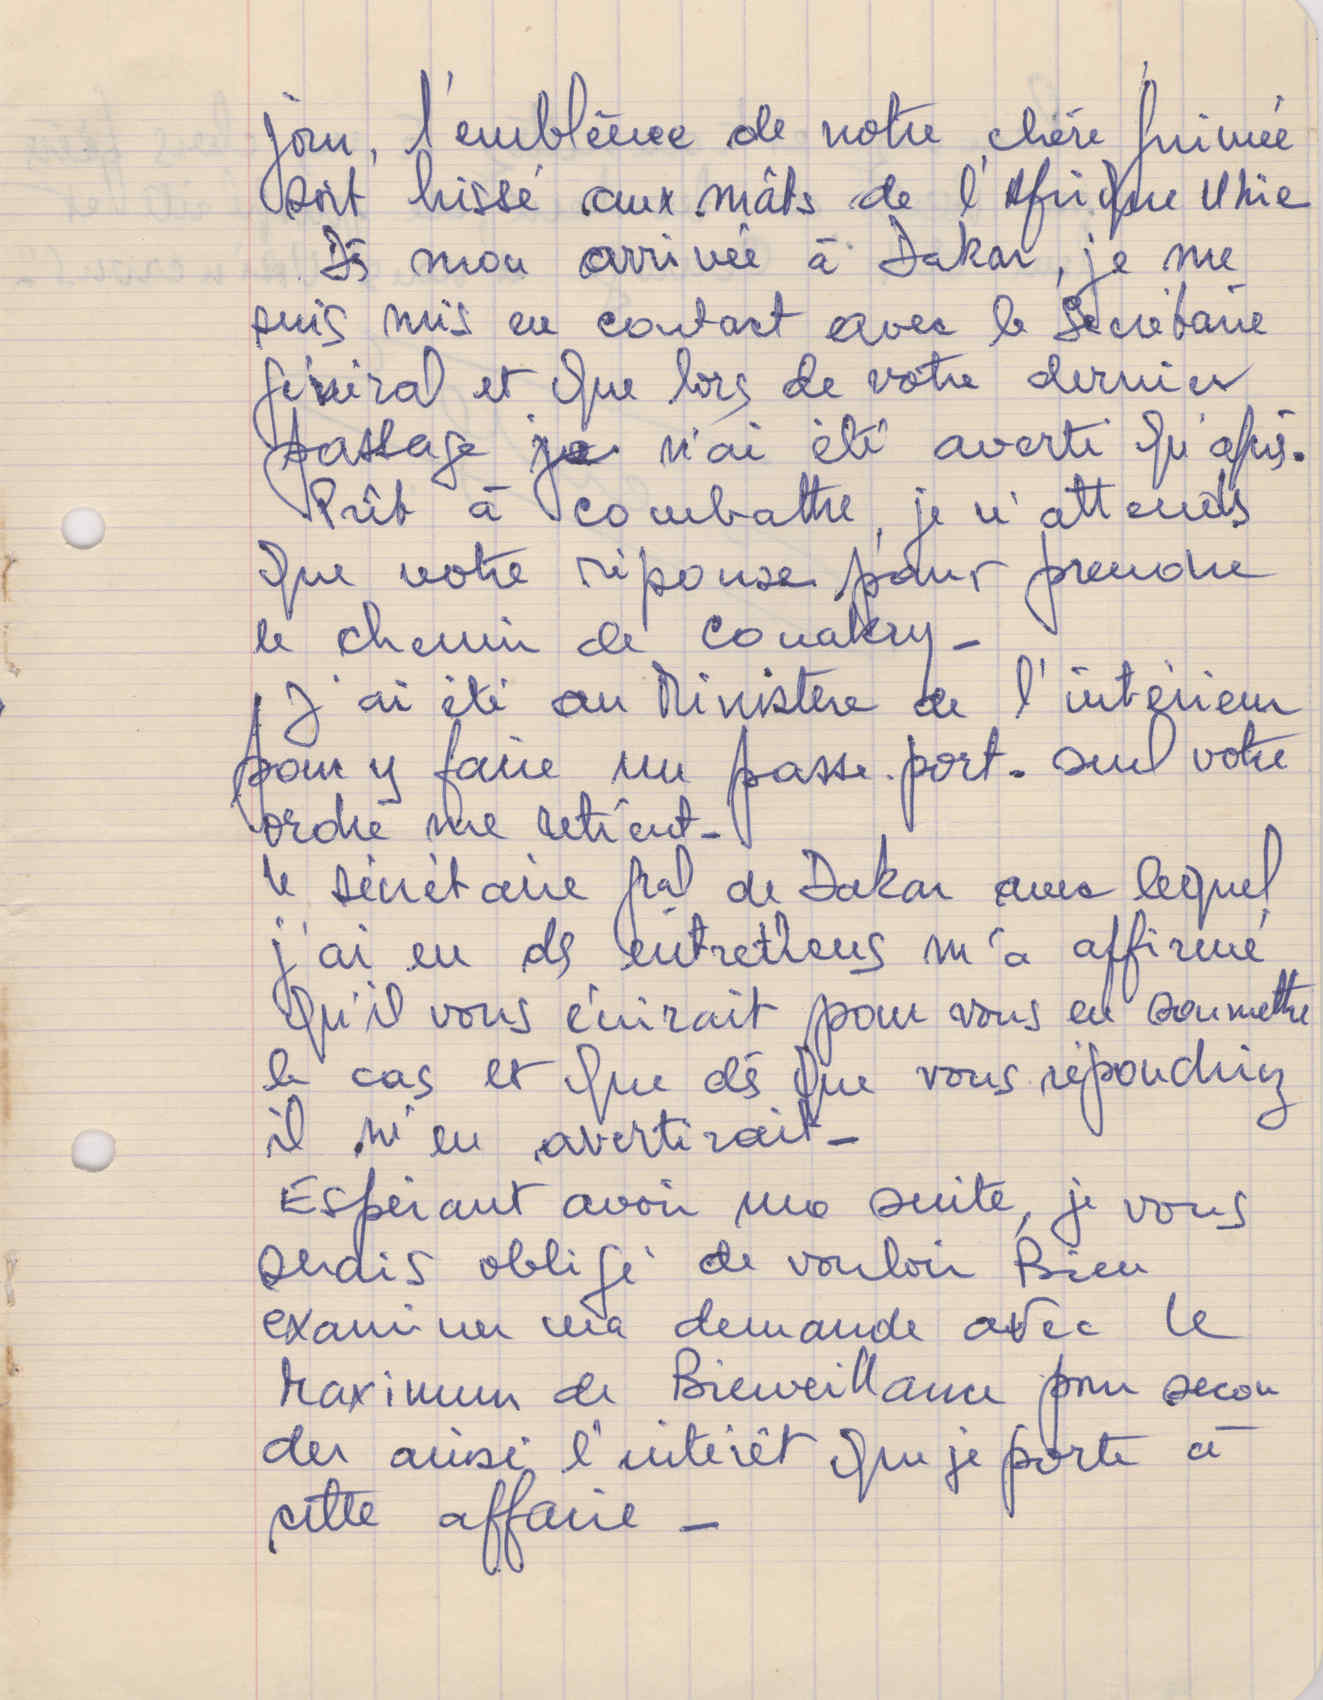 jour, l'emblême de notre chère Guinée
soit hissé aux mâts de l'Afrique Unie
Dès mon arrivée à Dakar, je me
suis mis en contact avec le Secrétaire
général et que lors de votre dernier
passage je n'ai été averti qu'après.
Prêt à combattre, je n'attends
que votre réponse pour prendre
le chemin de Conakry -
J'ai été au Ministère de l'intérieur
pour y faire un passe-port. seul votre
ordre me retient -
le sécrétaire gral de Dakar avec lequel
j'ai eu des entretiens m'a affirmé
qu'il vous écrirait pour vous en soumettre
le cas et que dès que vous répondriez
il m'en avertirait -
Espérant avoir une suite, je vous
serais obligé de vouloir Bien
examiner ma demande avec le
Maximum de Bienveillance pour secon
der ainsi l'intérêt que je porte à
cette affaire -